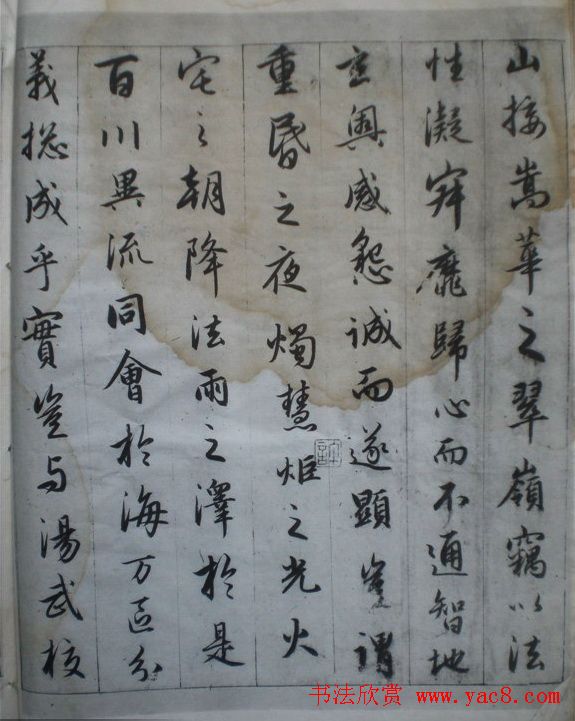 山接嵩華之翠嶺竊以法
性凝寂靡歸心而不通智地
玄奧感懇誠而遂顯豈謂
重昏之夜燭慧炬之光火
宅之朝降法雨之澤於是
百川異流同會於海万區分
義揔成乎實豈与湯武校
书法欣赏 www.yac8.com